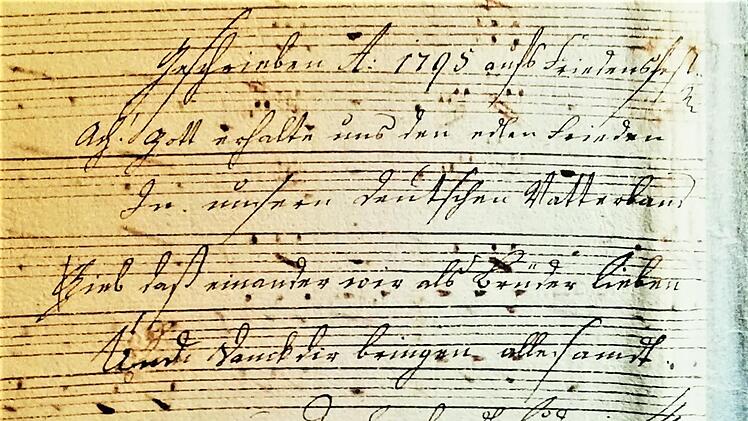 Geschrieben A: 1795 aufs Friedensfest.
Ach! Gott erhalte uns den edlen Frieden
In unsern deutschen Vatterland
Gieb daß einander wir als Brüder lieben
Und danck dir bringen allesamdt.